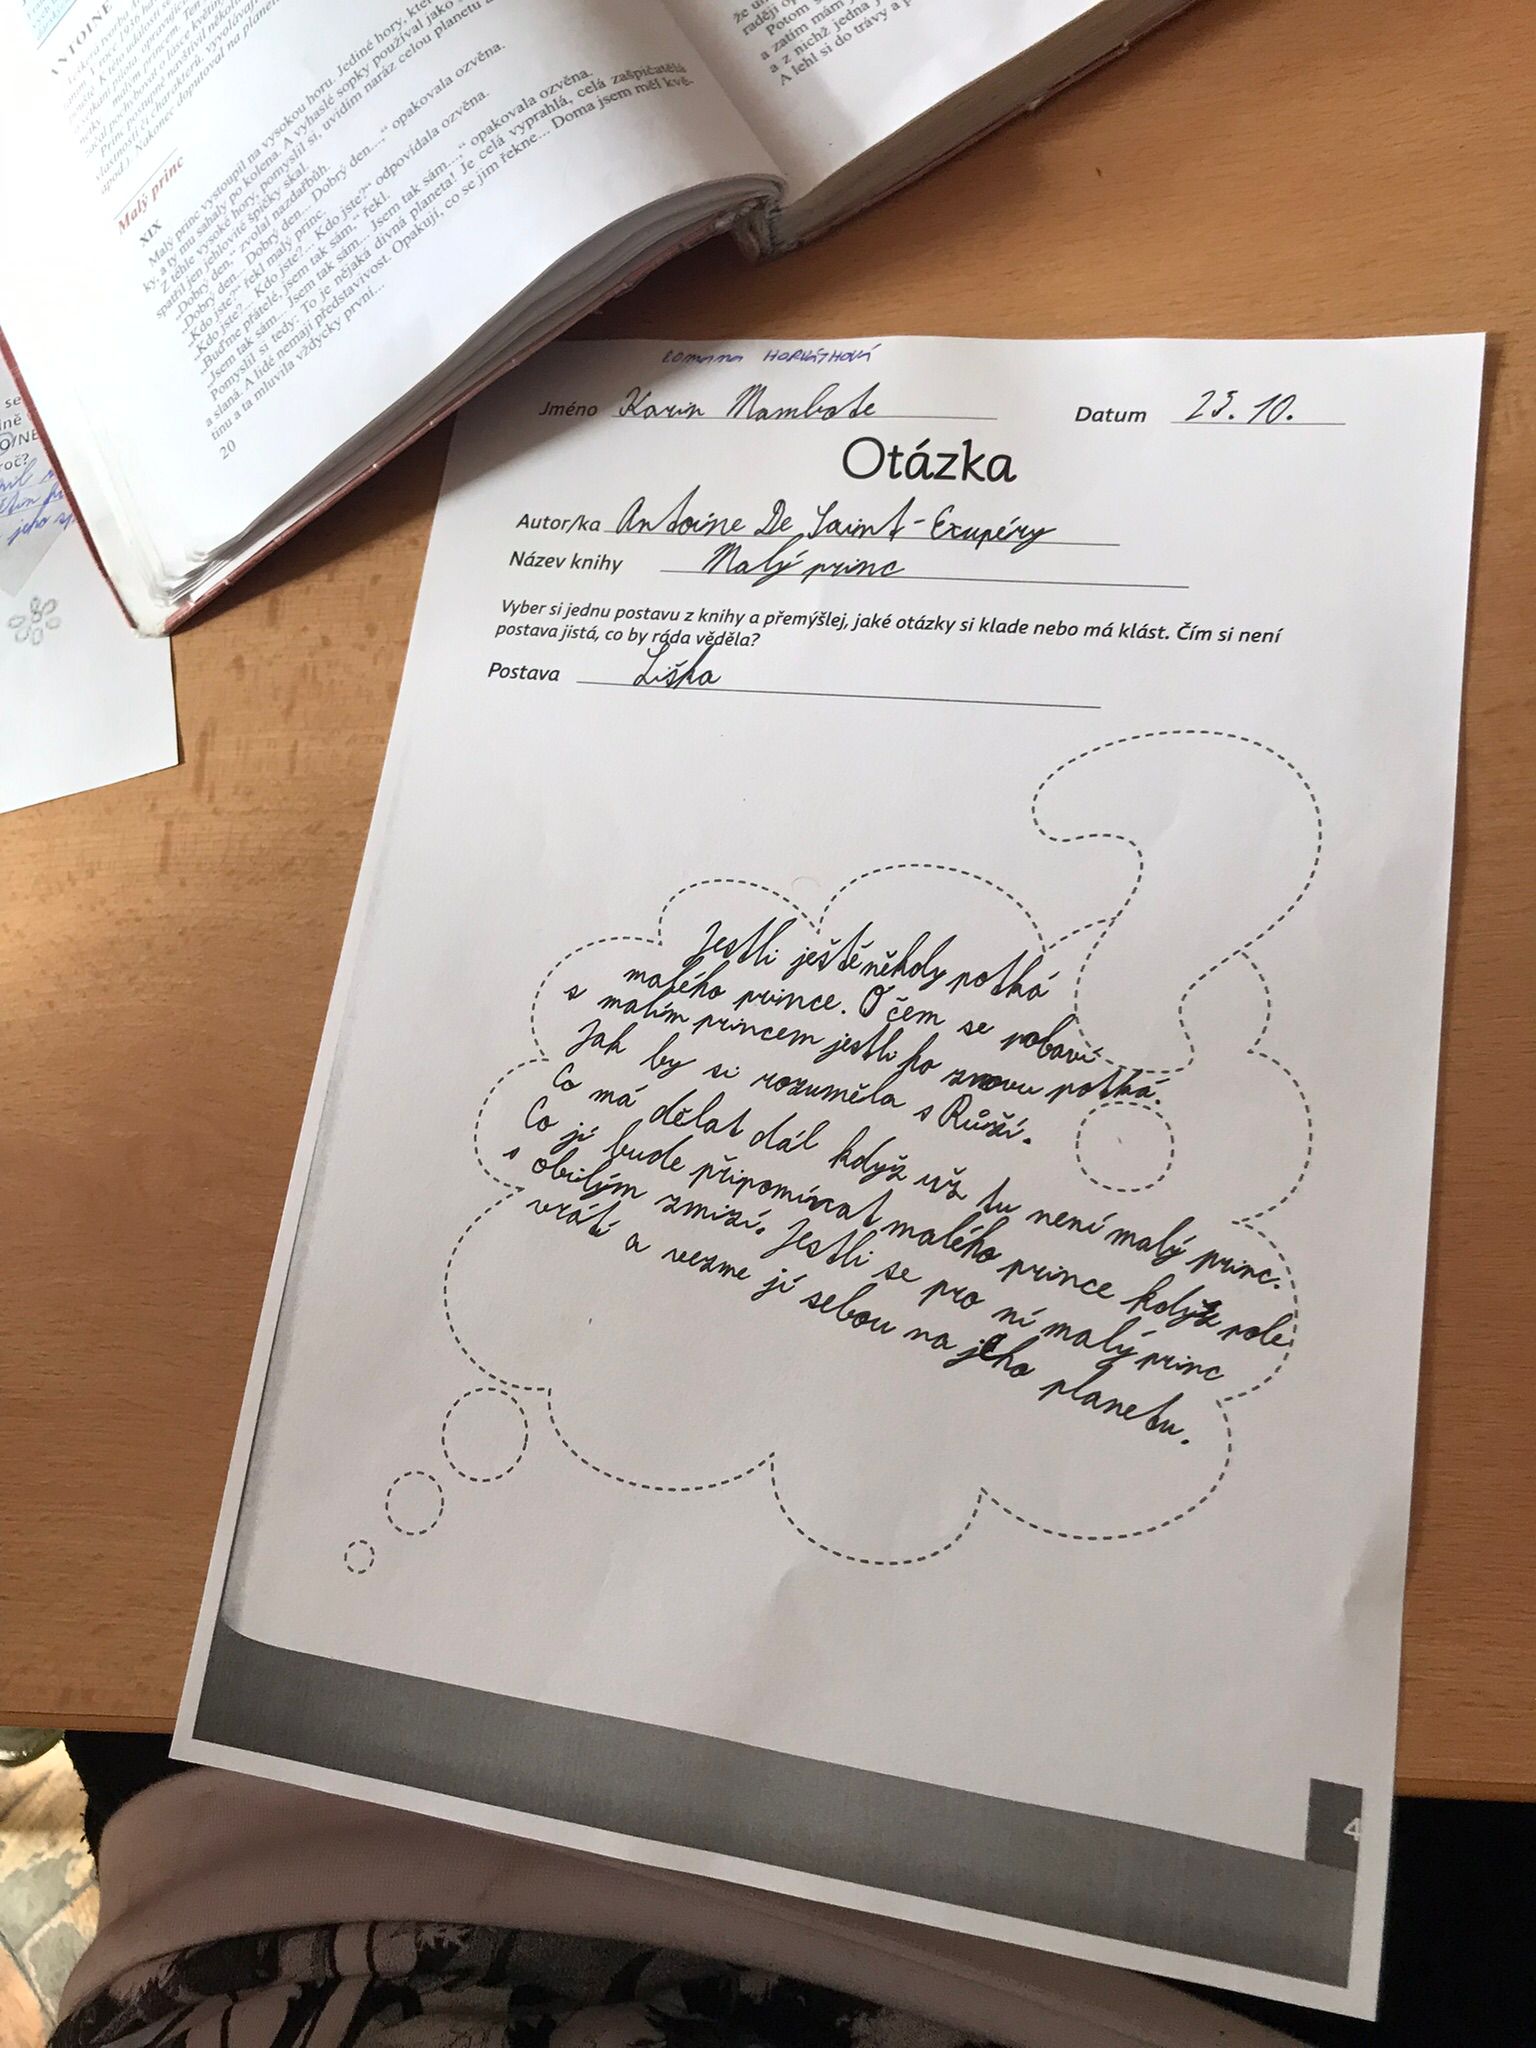 Malý princ
XIX
Malý princ vystoupil na vysokou horu. Jediné hory, kte
ky, a ty mu sahaly po kolena. A vyhaslé sopky používal jako
Z téhle vysoké hory, pomyslil si, uvidím naráz celou planetu a
spatřil jen jehlovité špičky skal.
„Dobrý den,“ zvolal nazdařbůh.
„Dobrý den... Dobrý den... Dobrý den...,“ opakovala ozvěna.
„Kdo jste?“ řekl malý princ.
„Kdo jste?... Kdo jste?... Kdo jste?“ odpovídala ozvěna.
„Buďme přátelé, jsem tak sám,“ řekl.
„Jsem tak sám... Jsem tak sám... Jsem tak sám...,“ opakovala ozvěna.
Pomyslil si tedy: To je nějaká divná planeta! Je celá vyprahlá, celá zašpičatělá
a slaná. A lidé nemají představivost. Opakují, co se jim řekne... Doma jsem měl kvě-
tinu a ta mluvila vždycky první...
20
Potom s
a zatím mám j
a z nichž jedna j
A lehl si do trávy a p
Romana HORVÁTHOVÁ
Jméno Karin Mambote Datum 23. 10.
Otázka
Autor/ka Antoine De Saint-Exupéry
Název knihy Malý princ
Vyber si jednu postavu z knihy a přemýšlej, jaké otázky si klade nebo má klást. Čím si není
postava jistá, co by ráda věděla?
Postava Liška
Jestli ještě někdy potká
malého prince. O čem se pobaví
s malím princem jestli ho znovu potká.
Jak by si rozuměla s Růží.
Co má dělat dál když už tu není malý princ.
Co jí bude připomínat malého prince když pole
s obilým zmizí. Jestli se pro ní malý princ
vrátí a vezme jí sebou na jeho planetu.
4